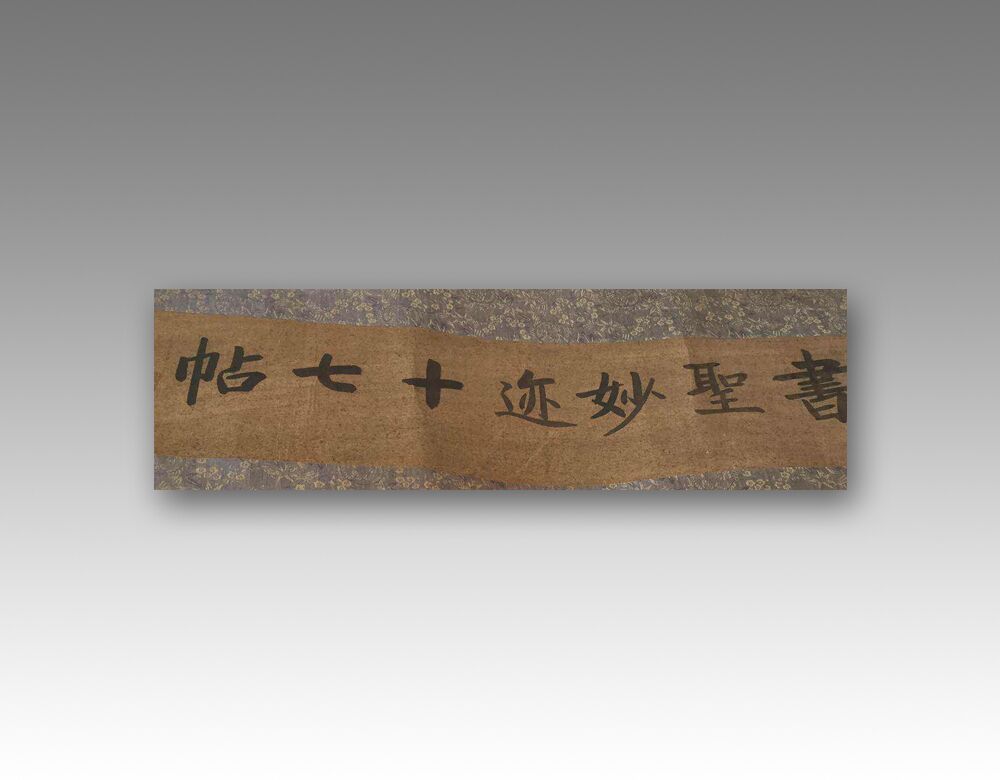 書聖妙迹十七帖